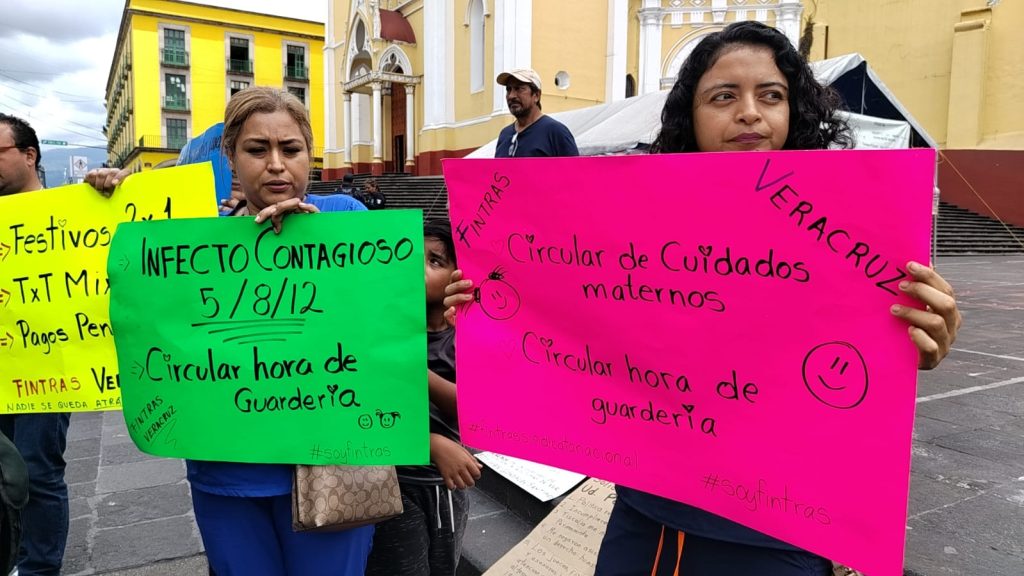 => Festivos 2x1
=> TxT Mix
=> Pagos Pen
FINTRAS VE
NADIE SE QUEDA ATRÁ
INFECTO CONTAGIOSO
5/8/12
Circular hora de
Guarderia
#FINTRAS
VERACRUZ
#soyfintras
#FINTRAS
VERACRUZ
Circular de Cuidados
maternos
Circular hora de
guarderia
#fintrassindicatonacional
#soyfintras